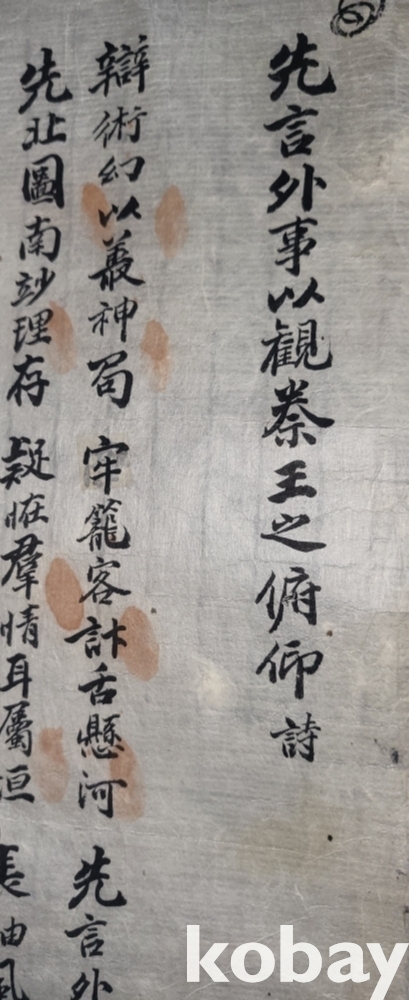 先言外事以觀秦王之俯仰 詩
辯術幻以蓋神蜀 牢籠客計舌懸河 先言外
先北圖南妙理存 疑在群情耳屬洹 長油風
kobay